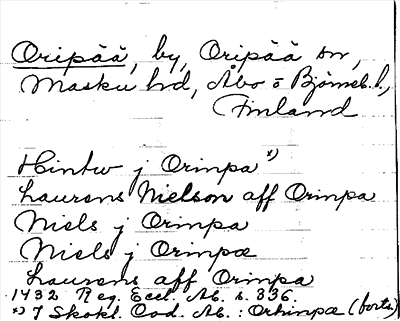 Oripää, by, Oripää sn,
Masku hd, Åbo o Björneb. l.,
Finland
Hintw j Orinpa x)
Laurens Nielson aff Orinpa
Niels j Orinpa
Niels j Orinpæ
Laurens aff Orinpa
1432 Reg. Eccl. Ab. s. 336.
x) I Skokl. Cod. Ab.: Orhinpæ (forts.)